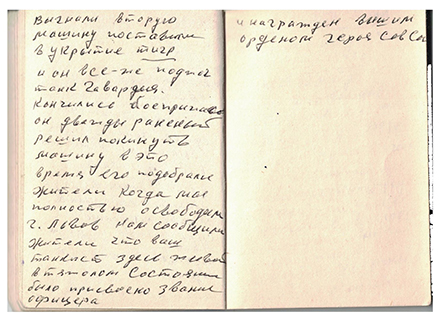 выгнали вторую
машину поставили
в укрытие тигр
и он все-же поджог
танк Гавардия.
Кончились боеприпасы
он дважды раненый
решил покинуть
машину в это
время его подобрали
жители когда мы
полностью освободили
г. Львов нам сообщили
жители что ваш
танкист здесь живой
в тяжолом состоянии
было присвоено звание
офицера
и награжден
орденом героя Сов Союза